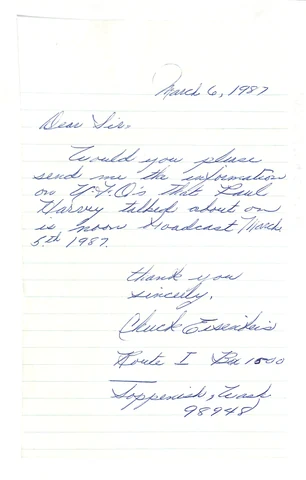 March 6, 1987
Dear Sir:
Would you please
send me the information
on U.F.O's that Paul
Harvey talked about on
is noon broadcast March
5th 1987.
thank you
sincerly,
Chuck
Route 1 Box 1500
Toppenish, Wash
98948